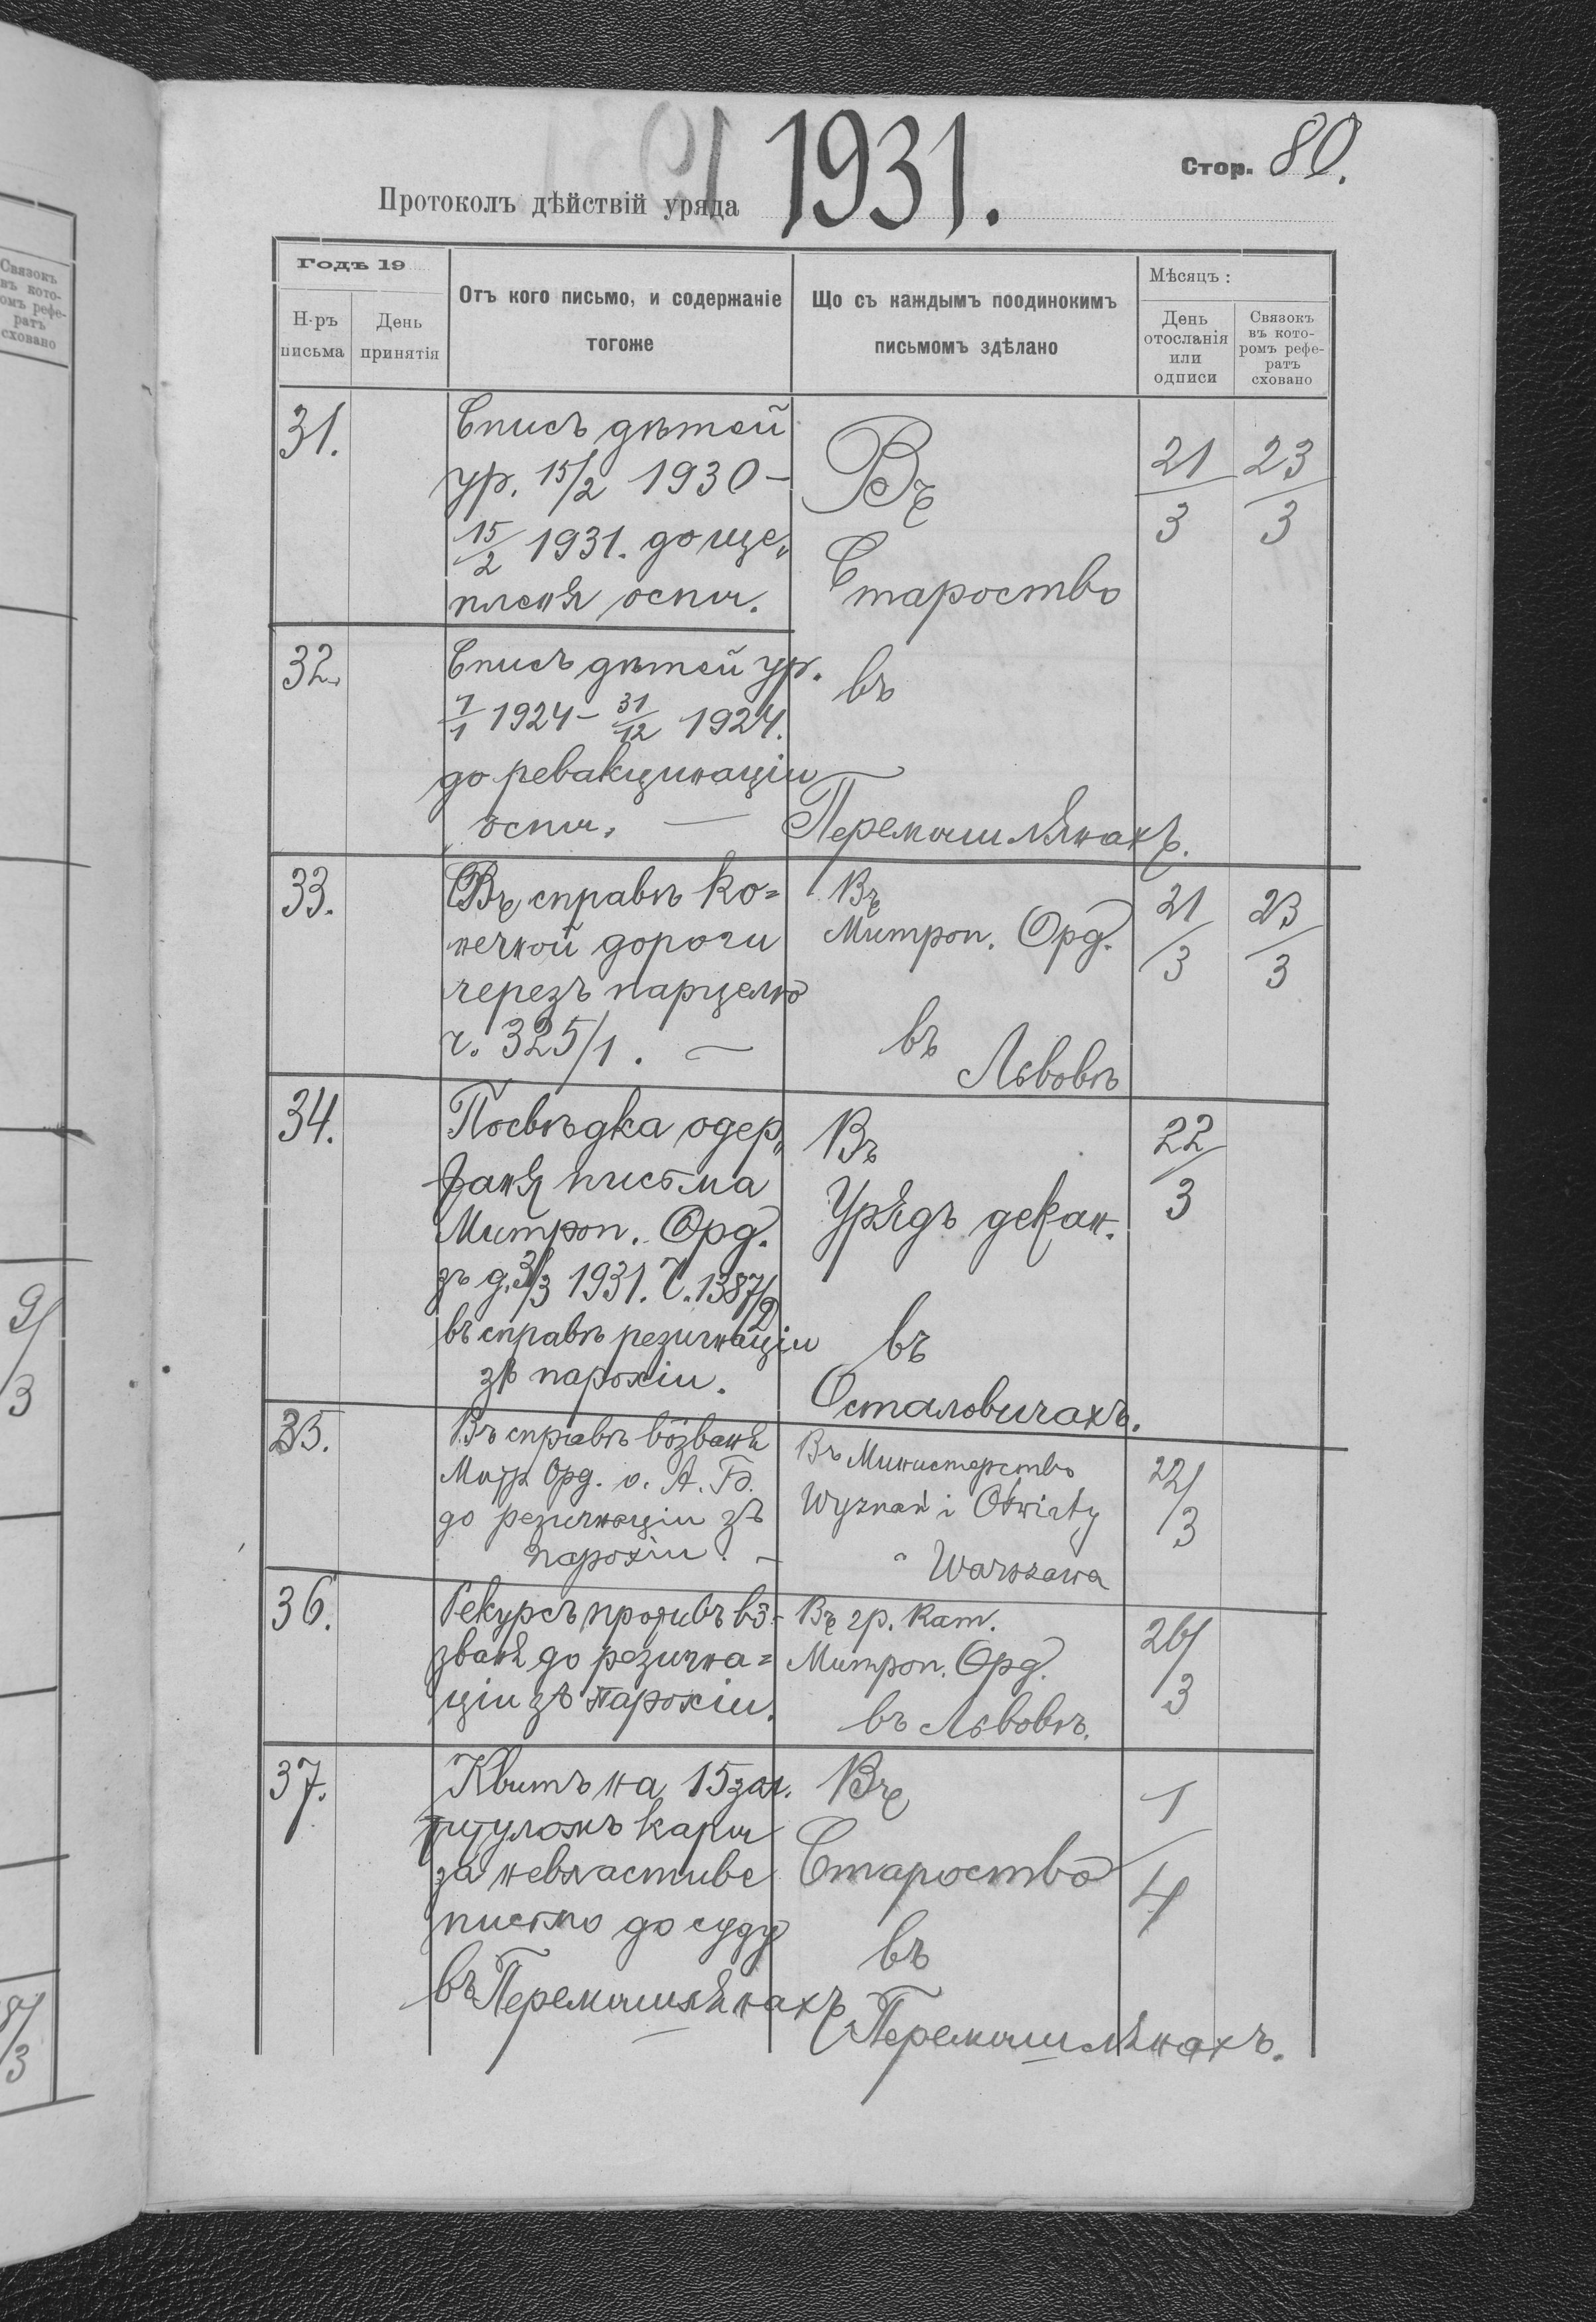 1931.
Стор. 80.
Протоколъ дѣйствій уряда
Годъ 19
Н-ръ письма
День принятія
Отъ кого письмо, и содержаніе
тогоже
Що съ каждымъ поодинокимъ
письмомъ здѣлано
Мѣсяцъ :
День
отосланія
или
одписи
Связокъ
въ кото-
ромъ рефе-
ратъ
сховано
31.
Списъ дѣтей
ур. 15/2 1930 -
15/2 1931. до ще„
пленя оспы.
Въ
Староство
21/3
23/3
32.
Списъ дѣтей ур.
1/1 1924 - 31/12 1924.
до ревакцинаціи
оспы. —
въ
Перемышлянахъ.
33.
Въ справѣ ко=
нечной дороги
черезъ парцелю
ч. 325/1. —
Въ
Митроп. Орд.
въ
Львовѣ
21/3
23/3
34.
Посвѣдка одер„
жаня письма
Митроп. Орд.
зъ д. 3/3 1931. Ч. 1387/9
въ справѣ резигнаціи
зъ парохіи.
Въ
Урядъ декан.
въ
Осталовичахъ.
22/3
35.
Въ справѣ вôзваня
Митр. Орд. о. А. Б.
до резигнаціи зъ
парохіи. —
Въ Министерство
Wyznań i Oświaty
Warszawa
22/3
36.
Рекурсъ противъ вô-
званя до резигна=
ціи зъ парохіи.
Въ гр. кат.
Митроп. Орд.
въ Львовѣ.
26/3
37.
Квитъ на 15 зол.
титуломъ кары
за невластиве
письмо до суду
въ Перемышлянахъ
Въ
Староство
въ
Перемышлянахъ.
1/4
Связокъ
въ кото-
омъ рефе-
ратъ
сховано
9/3